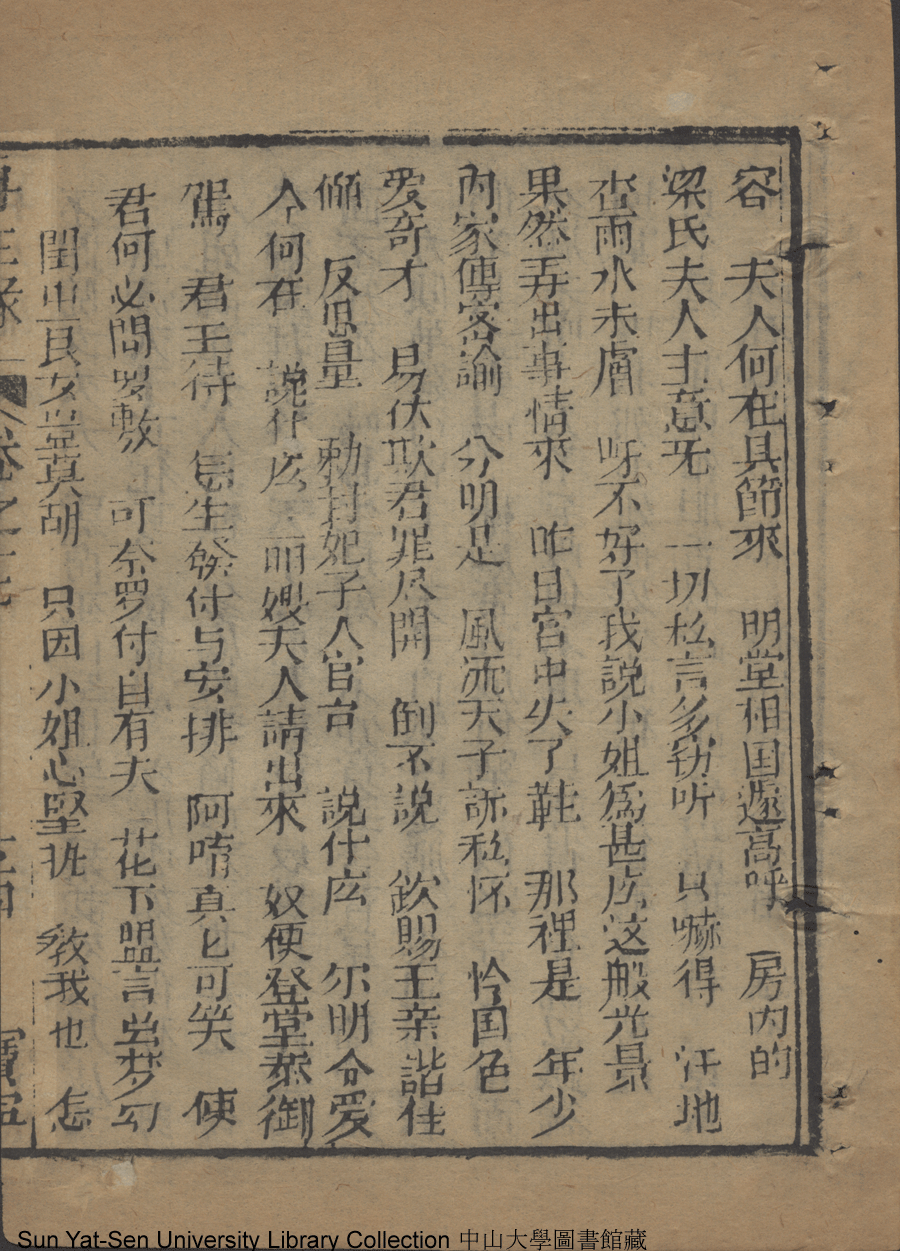 容　夫人何在具節來　明堂相国遂高呼　房内的
梁氏夫人主意无　一切私言多窃听　只嚇得　汗地
雨水未膚　呀不好了我説小姐爲甚広这般光景
果然弄出事情來　昨日宫中失了鞋　那裡是　年少
内家傳密諭　分明是　風流天子訴私怀　怜国色
爱奇才　易伏欺君罪尽開　倒不說　欽賜王亲諧住
儷　反思量　勅封妃子入官　說什広　尔明分爱
人何在　說什広　丽嫂夫人請出來　奴便登堂恭御
駕　君王待　侯生發付与安排　阿唷真乜可笑　使
君何必問罗敷　可奈罗付自有夫　花下盟言当梦幻
閨中良女豈莫胡　只因小姐心堅執　教我也　怎
卷之
Sun Yat-Sen University Library Collection 中山大學圖書館藏